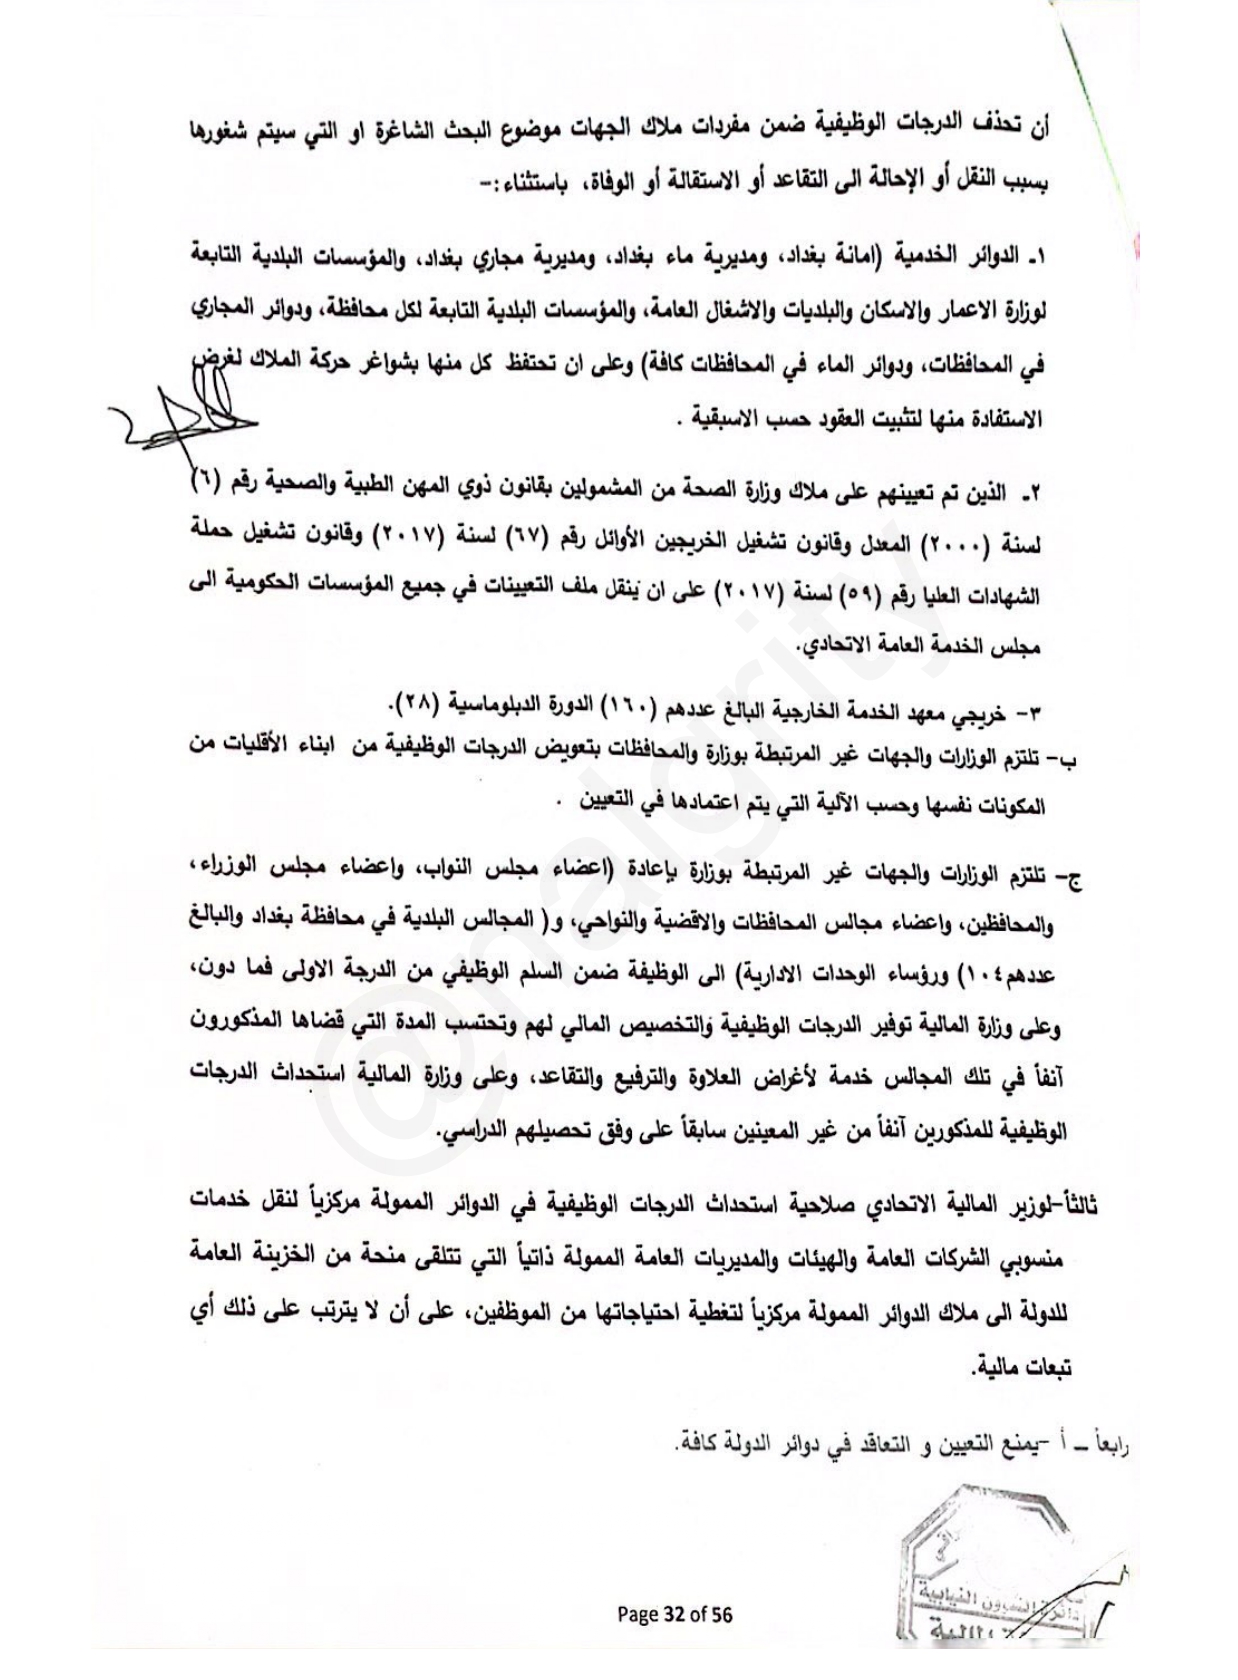 أن تحذف الدرجات الوظيفية ضمن مفردات ملاك الجهات موضوع البحث الشاغرة او التي سيتم شغورها
بسبب النقل أو الإحالة الى التقاعد أو الاستقالة أو الوفاة، باستثناء:-
١ـ الدوائر الخدمية (امانة بغداد، ومديرية ماء بغداد، ومديرية مجاري بغداد، والمؤسسات البلدية التابعة
لوزارة الاعمار والاسكان والبلديات والاشغال العامة، والمؤسسات البلدية التابعة لكل محافظة، ودوائر المجاري
في المحافظات، ودوائر الماء في المحافظات كافة) وعلى ان تحتفظ كل منها بشواغر حركة الملاك لغرض
الاستفادة منها لتثبيت العقود حسب الاسبقية .
٢ـ الذين تم تعيينهم على ملاك وزارة الصحة من المشمولين بقانون ذوي المهن الطبية والصحية رقم (٦)
لسنة (٢٠٠٠) المعدل وقانون تشغيل الخريجين الأوائل رقم (٦٧) لسنة (٢٠١٧) وقانون تشغيل حملة
الشهادات العليا رقم (٥٩) لسنة (٢٠١٧) على ان يَنقل ملف التعيينات في جميع المؤسسات الحكومية الى
مجلس الخدمة العامة الاتحادي.
٣- خريجي معهد الخدمة الخارجية البالغ عددهم (١٦٠) الدورة الدبلوماسية (٢٨).
ب- تلتزم الوزارات والجهات غير المرتبطة بوزارة والمحافظات بتعويض الدرجات الوظيفية من ابناء الأقليات من
المكونات نفسها وحسب الآلية التي يتم اعتمادها في التعيين .
ج- تلتزم الوزارات والجهات غير المرتبطة بوزارة بإعادة (اعضاء مجلس النواب، واعضاء مجلس الوزراء،
والمحافظين، واعضاء مجالس المحافظات والاقضية والنواحي، و( المجالس البلدية في محافظة بغداد والبالغ
عددهم١٠٤) ورؤساء الوحدات الادارية) الى الوظيفة ضمن السلم الوظيفي من الدرجة الاولى فما دون،
وعلى وزارة المالية توفير الدرجات الوظيفية والتخصيص المالي لهم وتحتسب المدة التي قضاها المذكورون
آنفاً في تلك المجالس خدمة لأغراض العلاوة والترفيع والتقاعد، وعلى وزارة المالية استحداث الدرجات
الوظيفية للمذكورين آنفاً من غير المعينين سابقاً على وفق تحصيلهم الدراسي.
ثالثاً-لوزير المالية الاتحادي صلاحية استحداث الدرجات الوظيفية في الدوائر الممولة مركزياً لنقل خدمات
منسوبي الشركات العامة والهيئات والمديريات العامة الممولة ذاتياً التي تتلقى منحة من الخزينة العامة
للدولة الى ملاك الدوائر الممولة مركزياً لتغطية احتياجاتها من الموظفين، على أن لا يترتب على ذلك أي
تبعات مالية.
رابعاً ـ أ -يمنع التعيين و التعاقد في دوائر الدولة كافة.
دائرة الشؤون النيابية
Page 32 of 56
@nalgrity